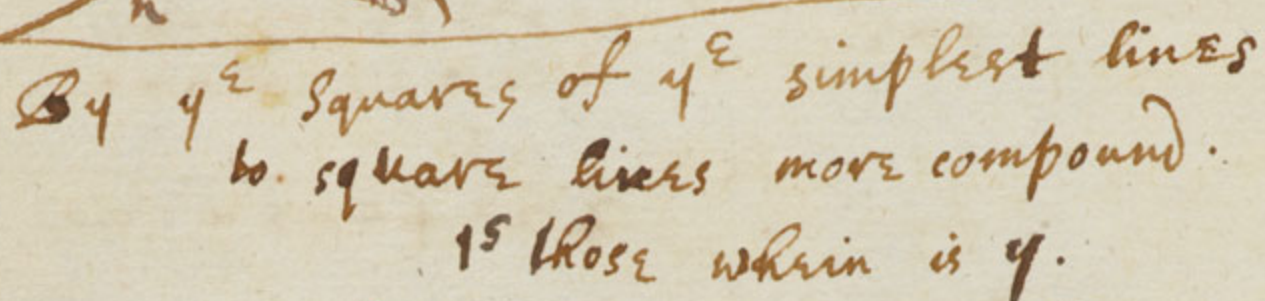 By yᵉ Squares of yᵉ simplest lines
to square lines more compound.
1ˢ those wherin is y.